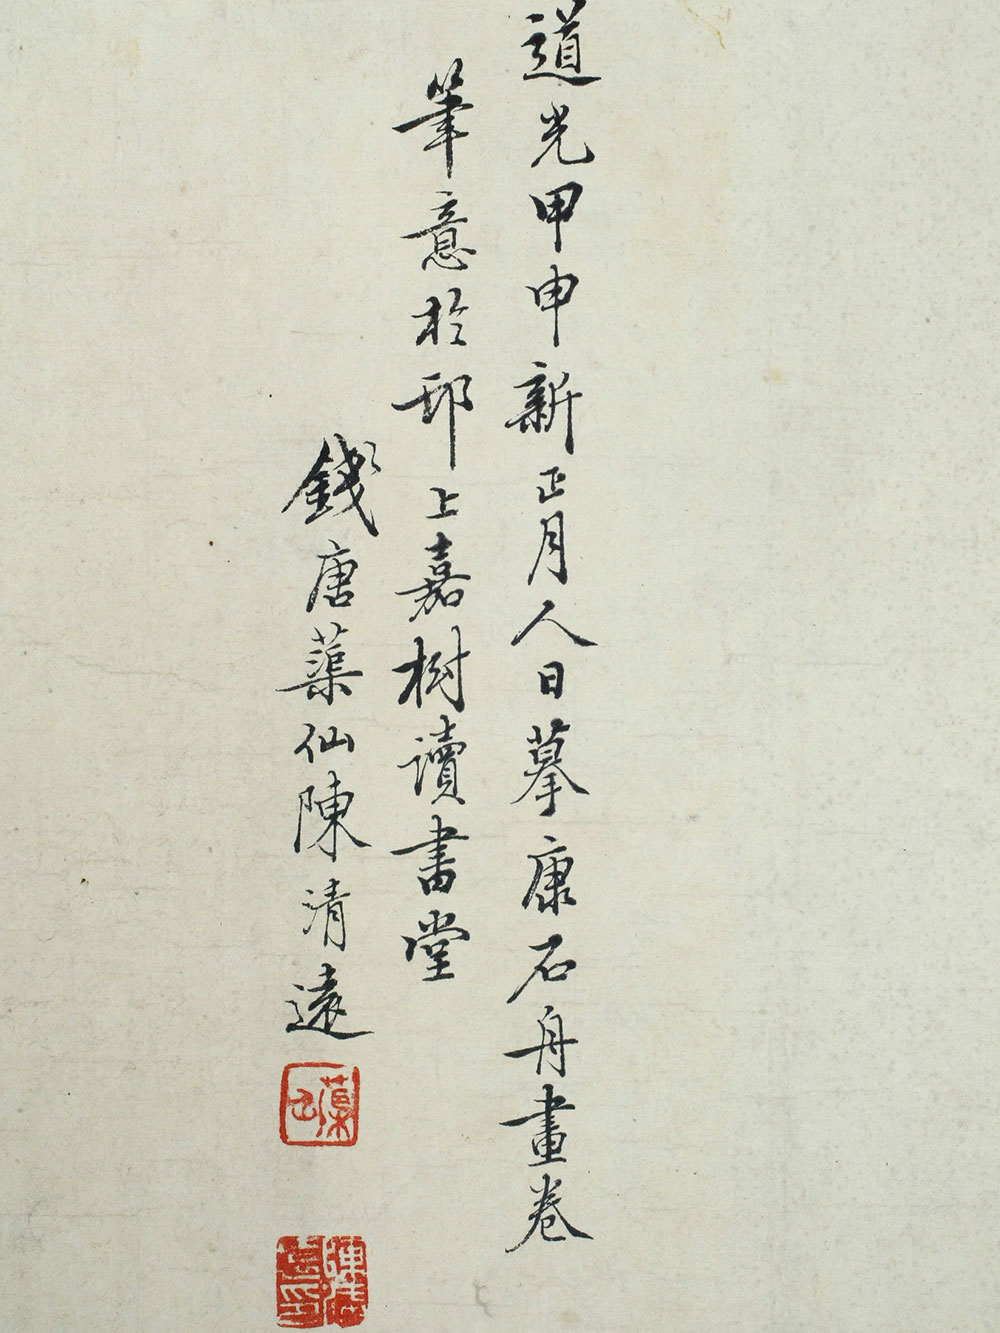 道光甲申新正月人日摹康石舟畫卷
筆意於邗上嘉樹讀書堂
錢唐蕖仙陳清遠